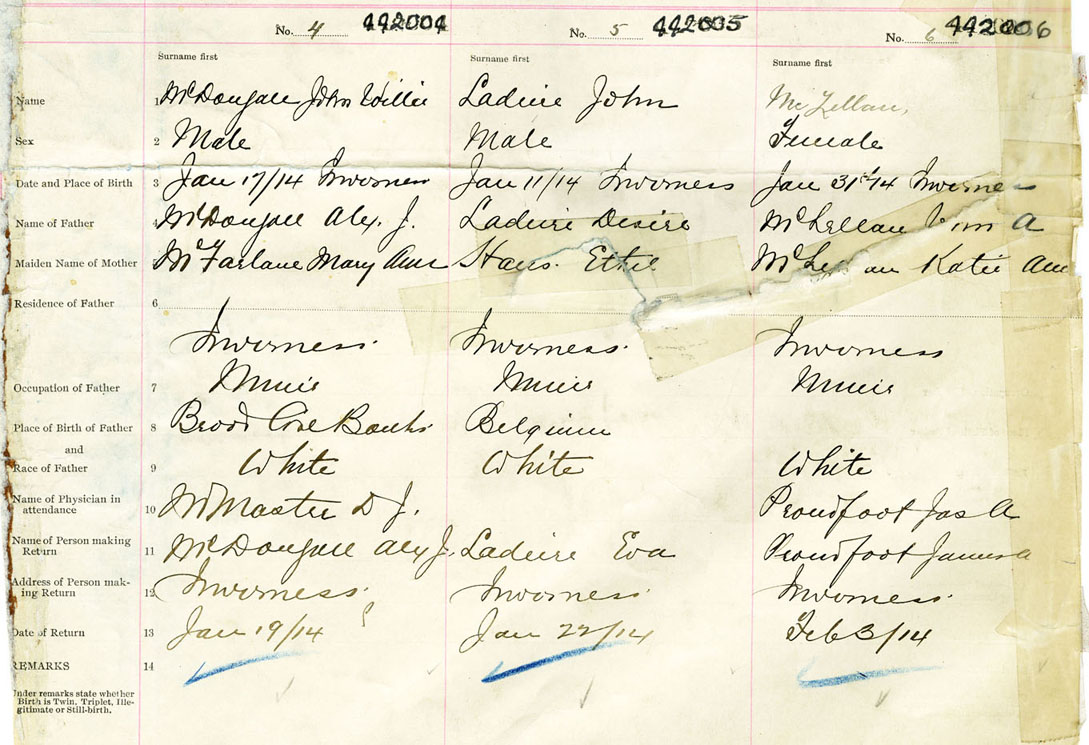 No. 4 442004 No. 5 442005 No. 6 442006
Surname first Surname first Surname first
Name 1 McDougall John Willie Laduire John McLellan,
Sex 2 Male Male Female
Date and Place of Birth 3 Jan 17/14 Inverness Jan 11/14 Inverness Jan 31st/14 Inverne
Name of Father 4 McDougall Alex. J. Laduire Desire McLellan A
Maiden Name of Mother McFarlane Mary Ann Ethel Katie Ann
Residence of Father 6
Inverness. Inverness. Inverness
Occupation of Father 7 Miner Miner Miner
Place of Birth of Father 8 Broad Cove Banks Belgium
and
Race of Father 9 White White White
Name of Physician in
attendance 10 McMaster D J. Proudfoot Jas A
Name of Person making
Return 11 McDougall Alex J. Laduire Eva Proudfoot James A
Address of Person mak-
ing Return 12 Inverness. Inverness. Inverness.
Date of Return 13 Jan 19/14 Jan 22/14 Feb 3/14
REMARKS 14
Under remarks state whether
Birth is Twin, Triplet, Ille-
gitimate or Still-birth.